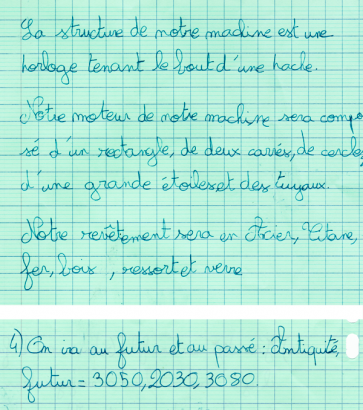 La structure de notre machine est une
horloge tenant le bout d'une hache.
Notre moteur de notre machine sera compo
sé d'un rectangle, de deux carrés, de cercles,
d'une grande étoiles et des tuyaux.
Notre revêtement sera en Acier, Titane,
fer, bois , ressort et verre
4) On va au futur et au passé : Antiquité,
futur = 3050, 2030, 3080.